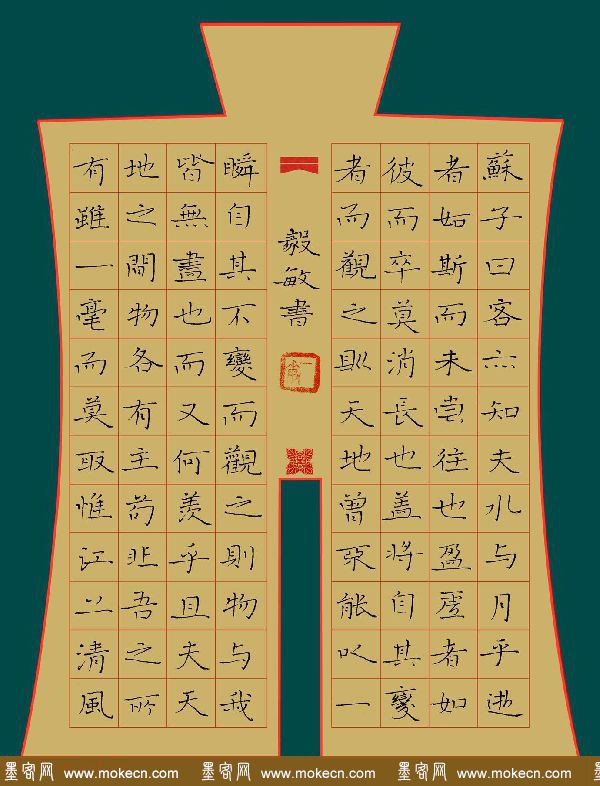 蘇子曰客亦知夫水与月乎逝
者如斯而未嘗往也盈虛者如
彼而卒莫消長也盖將自其變
者而觀之則天地曾不能以一
瞬自其不變而觀之則物与我
皆無盡也而又何羨乎且夫天
地之間物各有主苟非吾之所
有雖一毫而莫取惟江上清風
毅敏書
墨客网 www.mokecn.com 墨客网 www.mokecn.com 墨客网 www.mokecn.com